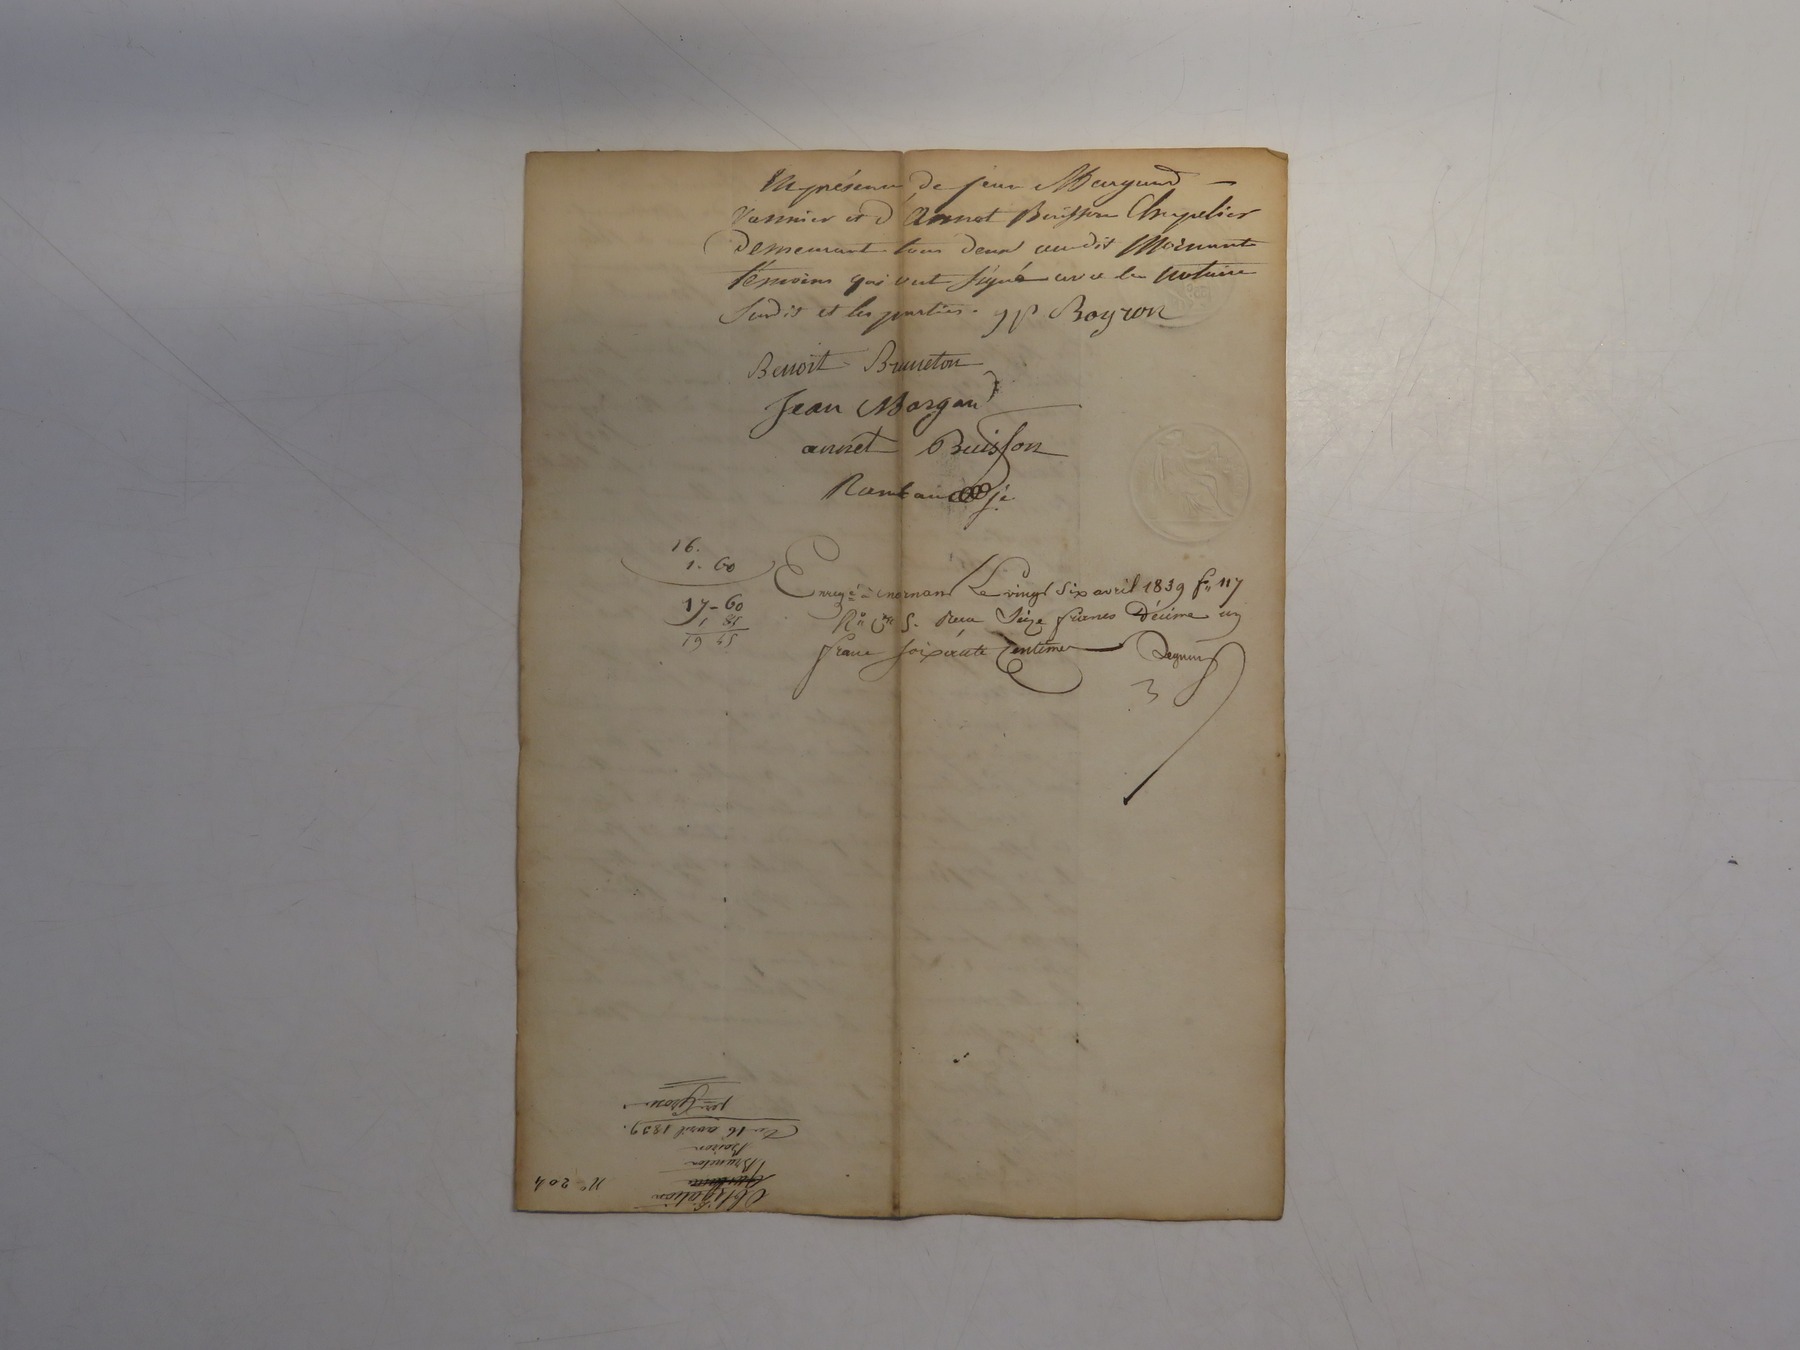 En présence de Jean Margand
Vannier et d'Annet Buisson Chapelier
Demeurant tous deux audit Mornant
témoins qui ont signé avec les notaire
Susdit et les parties. JP Boyron
Benoit Bruneton
Jean Morgand
annet Buisson
Rambau je
16.
1. 60
17-60
1 85
19 45
Enreg.é à mornant Le vingt Six avril 1839 f.º 117
R.º C.es 5. Reçu Seize francs Décime un
franc soixante Centimes
Nº 204
Obligation
Bruneton
Boiron
Du 16 avril 1839.